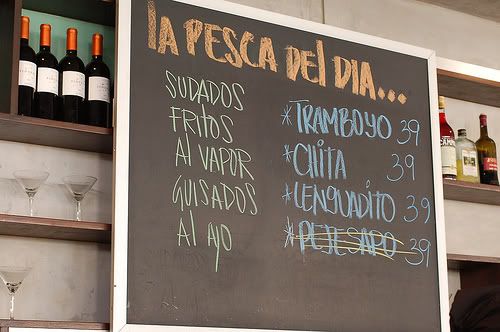 la PESCA DEL DIA...
SUDADOS
FRITOS
Al VAPOR
GUISADOS
Al AJO
*TRAMBOYO 39
*CHITA 39
*LENGUADITO 39
*PEJESAPO 39